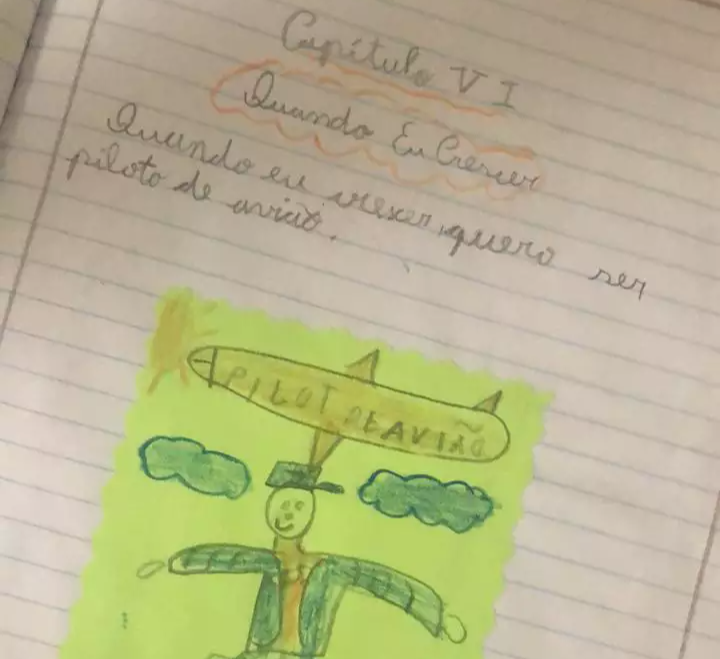 Capítulo VI
Quando Eu Crescer
Quando eu crescer, quero ser
piloto de avião.
PILOT DE AVIÃO